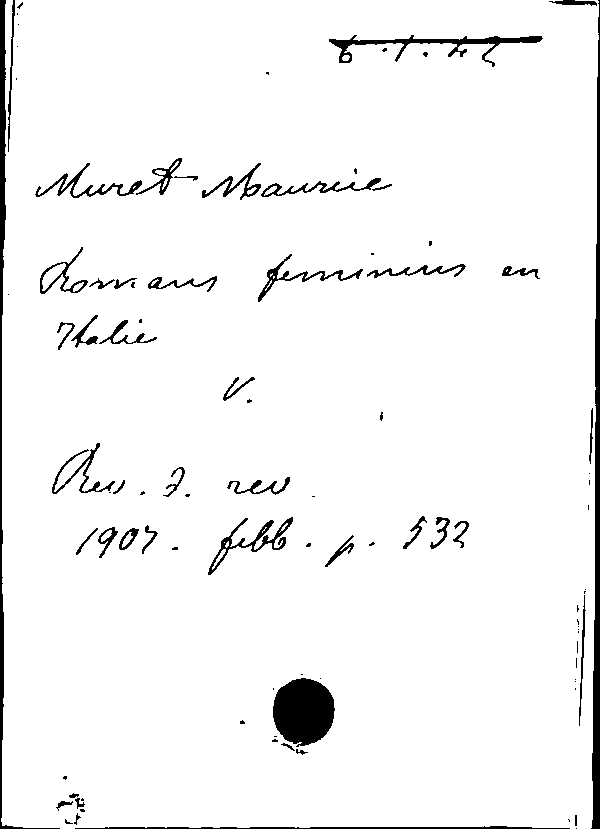 6.1.42
Muret Maurice
Romans feminins en
Italie
V.
Rev. d. rev.
1907. febb. p. 532